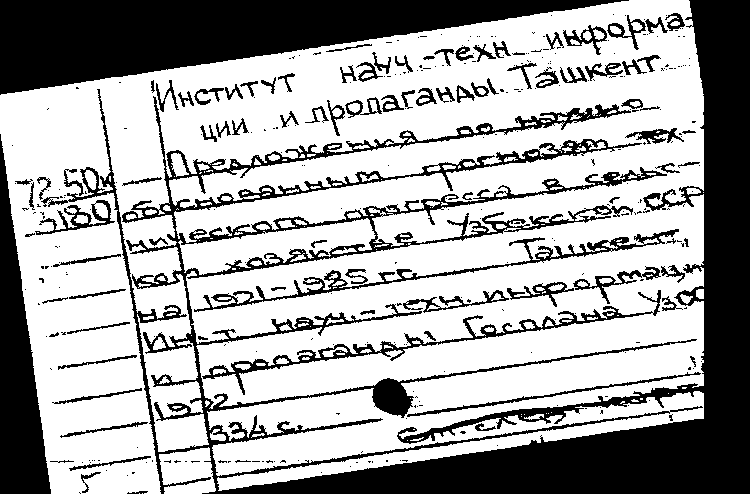 Институт науч.-техн. информа-
ции и пропаганды. Ташкент.
72.50к Предложения по научно
3180 обоснованным прогнозам тех-
нического прогресса в сельс-
ком хозяйстве Узбекской ССР
на 1971-1985 гг. Ташкент,
Ин-т науч.-техн. информации
и пропаганды Госплана УзСС
1972.
334 с.
См. след. карт
5